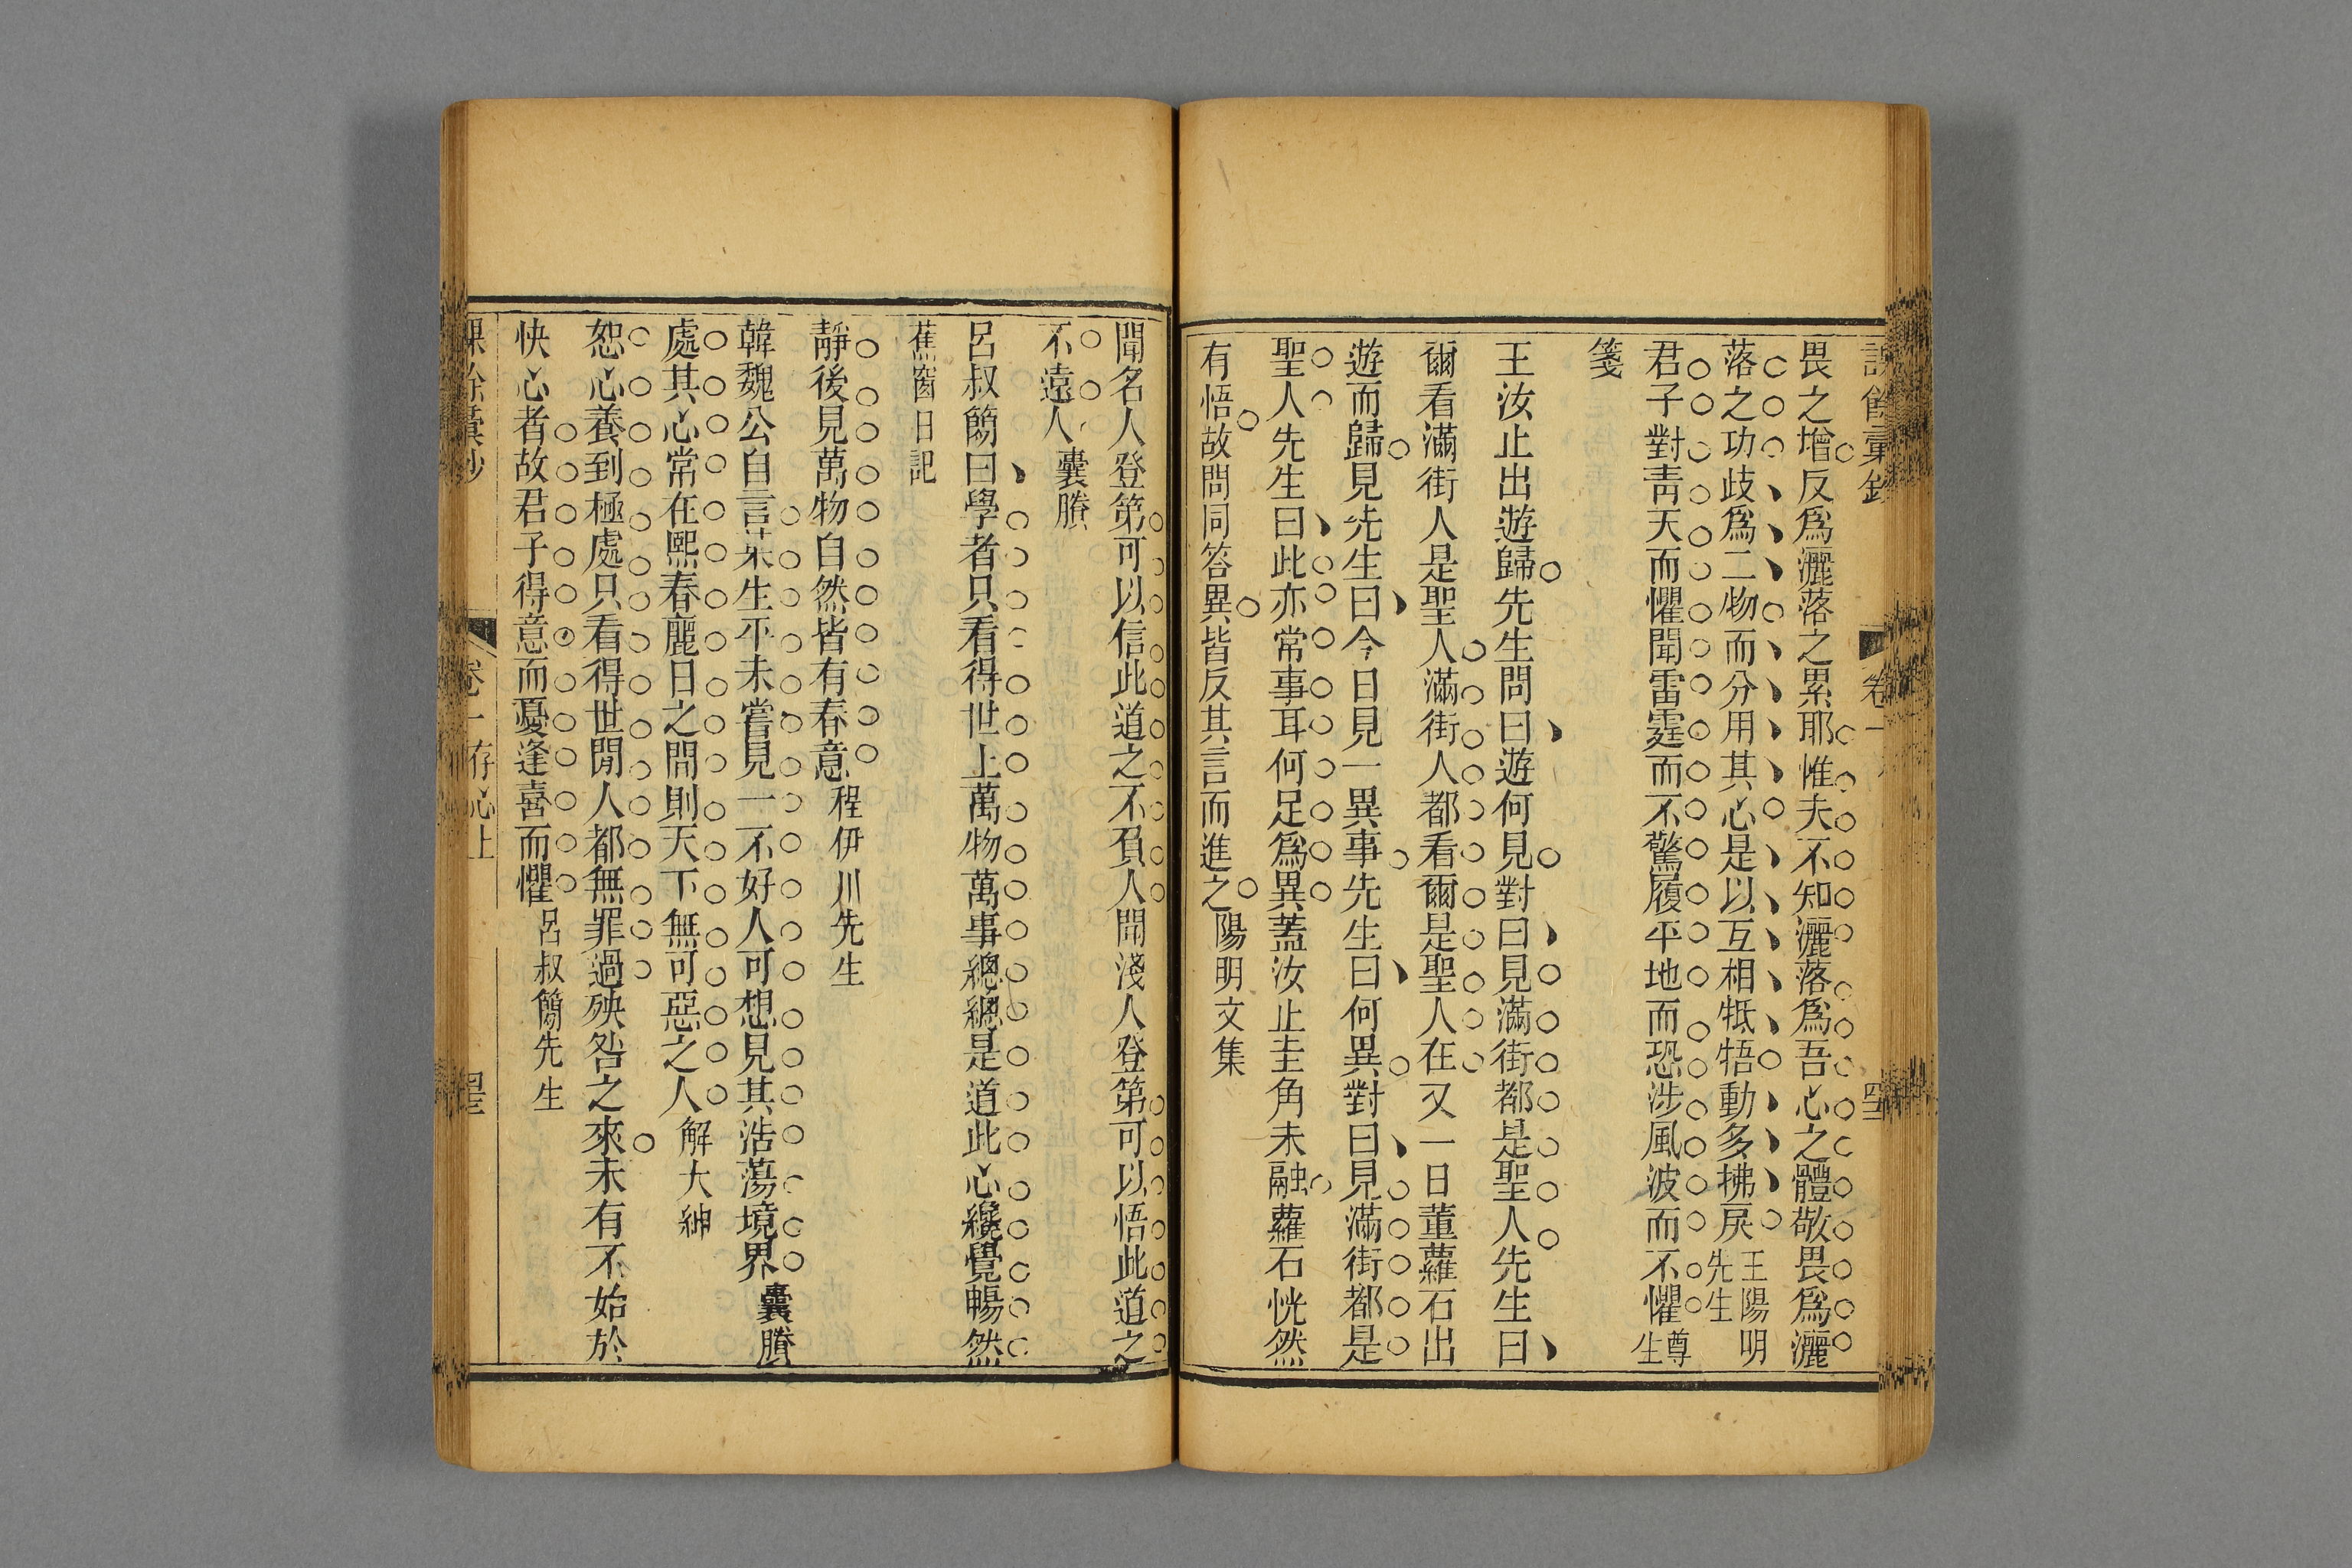 課餘彙鈔 卷一 四三
畏之增反爲灑落之累耶惟夫不知灑落爲吾心之體敬畏爲灑
落之功歧爲二物而分用其心是以互相牴牾動多拂戾王陽明先生
君子對靑天而懼聞雷霆而不驚履平地而恐涉風波而不懼尊生
箋
王汝止出遊歸先生問曰遊何見對曰見滿街都是聖人先生曰
爾看滿街人是聖人滿街人都看爾是聖人在又一日董蘿石出
遊而歸見先生曰今日見一異事先生曰何異對曰見滿街都是
聖人先生曰此亦常事耳何足爲異蓋汝止圭角未融蘿石恍然
有悟故問同答異皆反其言而進之陽明文集
聞名人登第可以信此道之不負人聞淺人登第可以悟此道之
不遠人囊賸
呂叔簡曰學者只看得世上萬物萬事總總是道此心纔覺暢然
蕉窗日記
靜後見萬物自然皆有春意程伊川先生
韓魏公自言某生平未嘗見一不好人可想見其浩蕩境界囊賸
處其心常在熙春麗日之間則天下無可惡之人解大紳
恕心養到極處只看得世閒人都無罪過殃咎之來未有不始於
快心者故君子得意而憂逢喜而懼呂叔簡先生
課餘彙鈔 卷一存心上